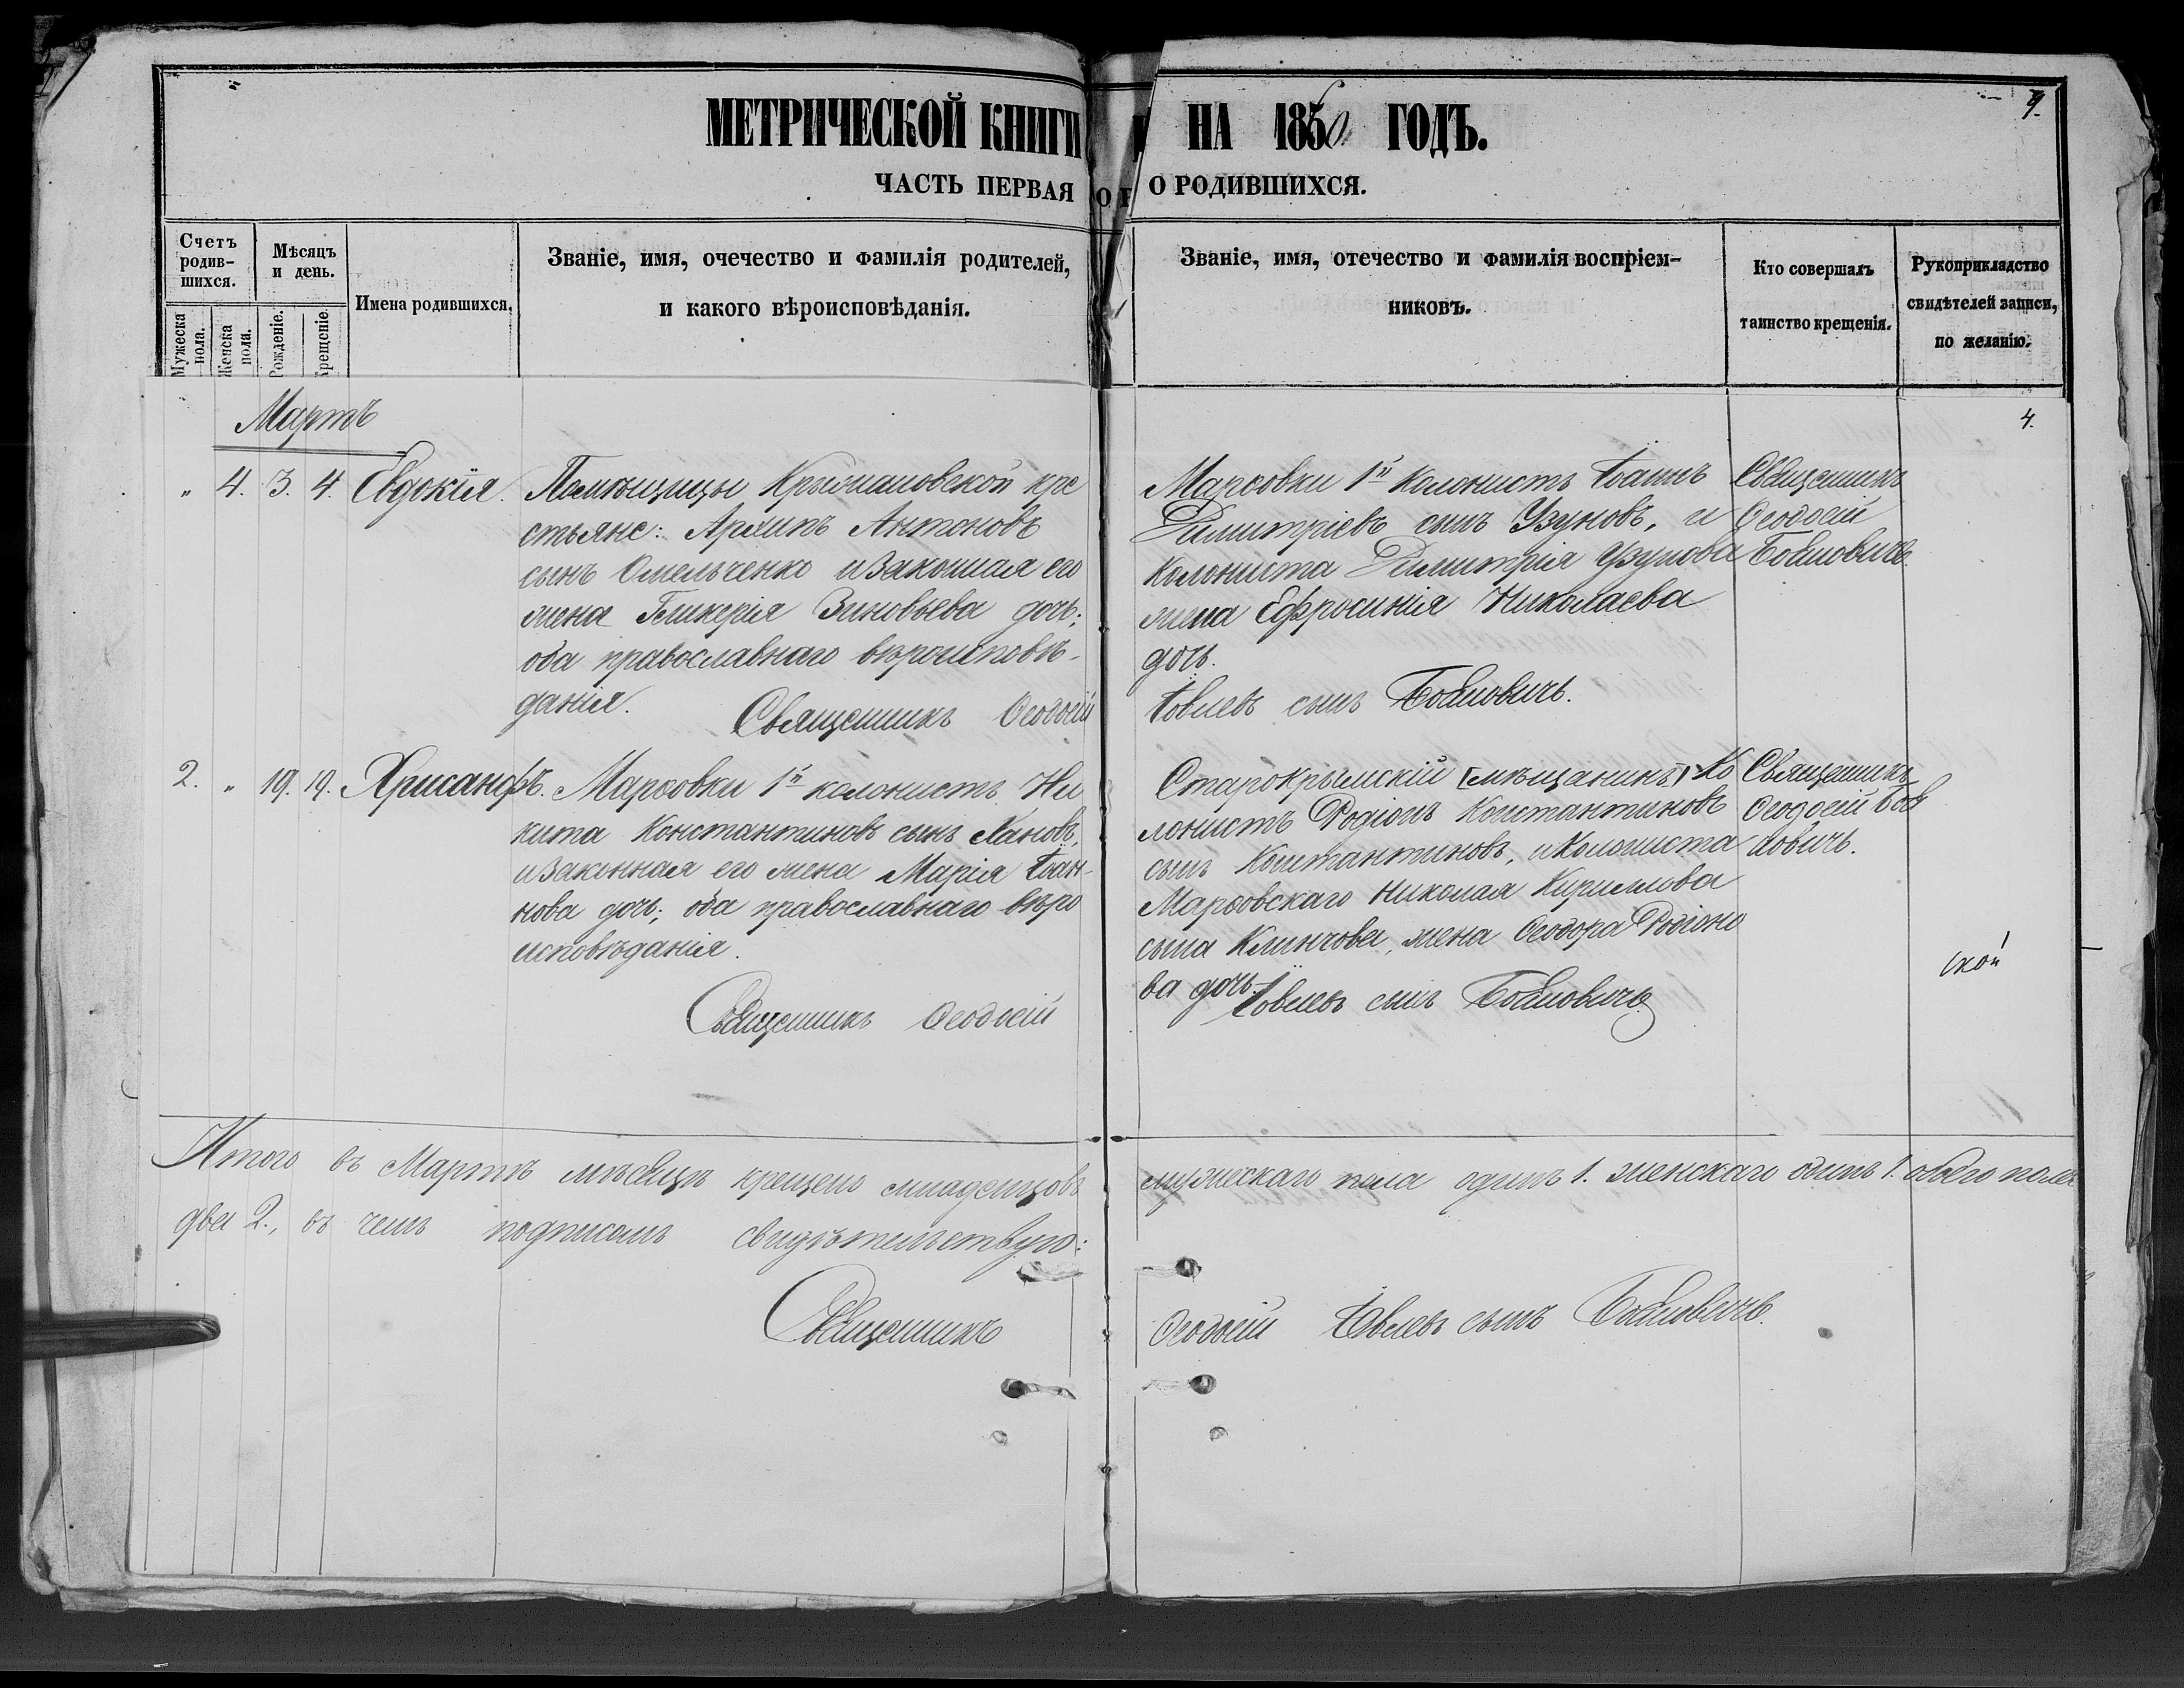 МЕТРИЧЕСКОЙ КНИГИ НА 1860 ГОДЪ.
9.
ЧАСТЬ ПЕРВАЯ О РОДИВШИХСЯ.
Счетъ родив-шихся.
Мужеска пола.
Женска пола.
Мѣсяцъ и день.
Рожденіе.
Крещеніе.
Имена родившихся.
Званіе, имя, очечество и фамилія родителей,
и какого вѣроисповѣданія.
Званіе, имя, отечество и фамилія воспріем-
никовъ.
Кто совершалъ
таинство крещенія.
Рукоприкладство
свидѣтелей записи,
по желанію.
4.
Мартъ
" 4. 3. 4. Евдокія.
Помѣщицы кре
стьяне: Архипъ Антоновъ
сынъ Омельченко и законная его
жена Гликерія Зиновьева дочь;
оба православнаго вѣроисповѣ-
данія.
Священникъ Ѳеодосій
Марѳовки 1й Колонистъ Іоаннъ
Димитріевъ сынъ Узуновъ, и
колониста Димитрія Узунова
жена Ефросинія Николаева
дочь.
Іовлевъ сынъ Бойловичъ.
Священникъ
Ѳеодосій
Бойловичъ.
2. " 19. 19. Хрисанфъ.
Марѳовки 1й колонистъ Ни
кита Константиновъ сынъ
и законная его жена Марія Іоан-
нова дочь; оба православнаго вѣро
исповѣданія.
Священникъ Ѳеодосій
Старокрымскій [мѣщанинъ] Ко
лонистъ Родіонъ Константиновъ
сынъ Константиновъ, и Колониста
Марѳовскаго Николая Кириллова
сына Клинчова, жена Ѳеодора Родіоно
ва дочь.
Іовлевъ сынъ Бойловичъ
Священникъ
Ѳеодосій Бой
ловичъ.
ской
Итого въ Мартѣ мѣсяцѣ крещено младенцовъ мужескаго пола одинъ 1. женскаго одинъ 1. обоего пола
два 2., въ чемъ подписомъ свидѣтельствую:
Священникъ Ѳеодосій Іовлевъ сынъ Бойловичъ.